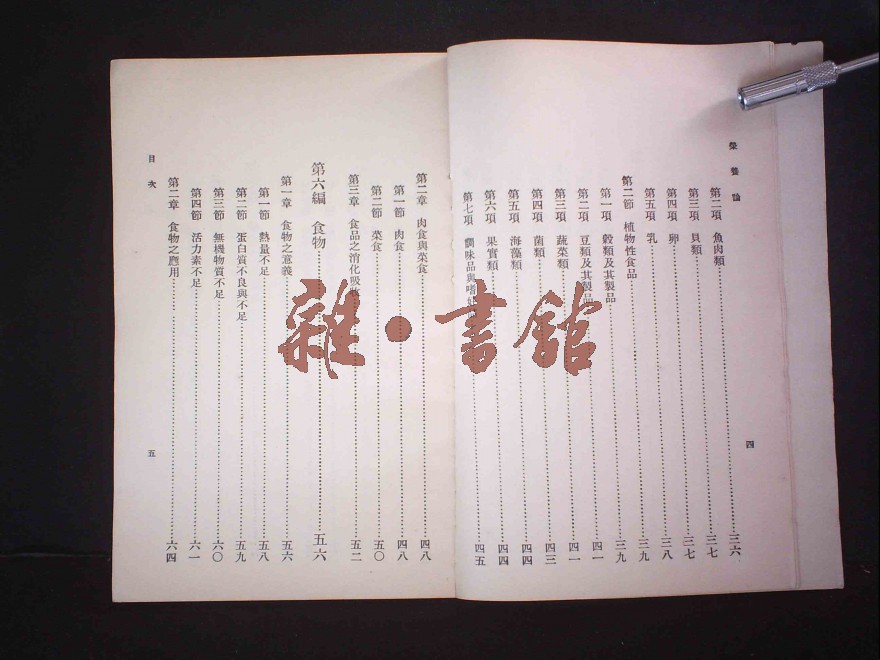 榮養論
第二項 魚肉類……三六
第三項 貝類……三七
第四項 卵……三七
第五項 乳……三八
第二節 植物性食品……三九
第一項 穀類及其製品……三九
第二項 豆類及其製品……四一
第三項 蔬菜類……四一
第四項 菌類……四三
第五項 海藻類……四四
第六項 果實類……四四
第七項 調味品與嗜……四五
四
第二章 肉食與菜食……四八
第一節 肉食……四八
第二節 菜食……五〇
第三章 食品之消化吸收……五二
第六編 食物……五六
第一章 食物之意義……五六
第一節 熱量不足……五八
第二節 蛋白質不良與不足……五九
第三節 無機物質不足……六〇
第四節 活力素不足……六一
第二章 食物之應用……六四
目次
五
雜·書館